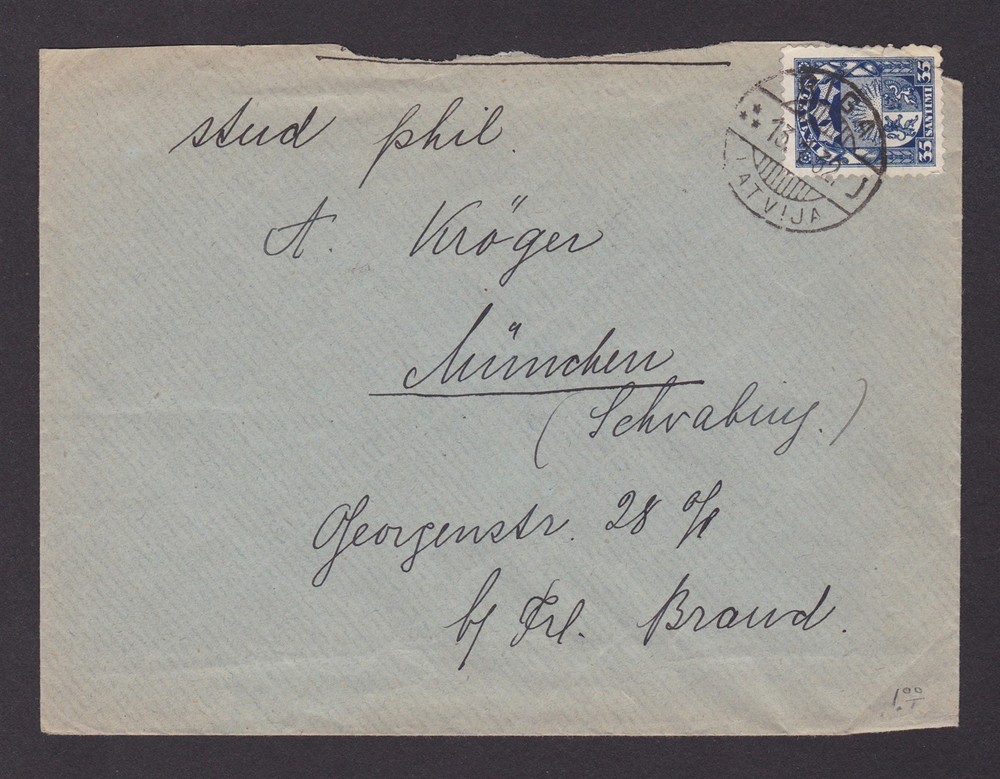 stud phil.
A. Kröger
München
(Schwabing.)
Georgenstr. 28
b/ Frl. Brand.
35 SANTIMI 35
LATVIJA
RIGA
13. 32
LATVIJA
1.00